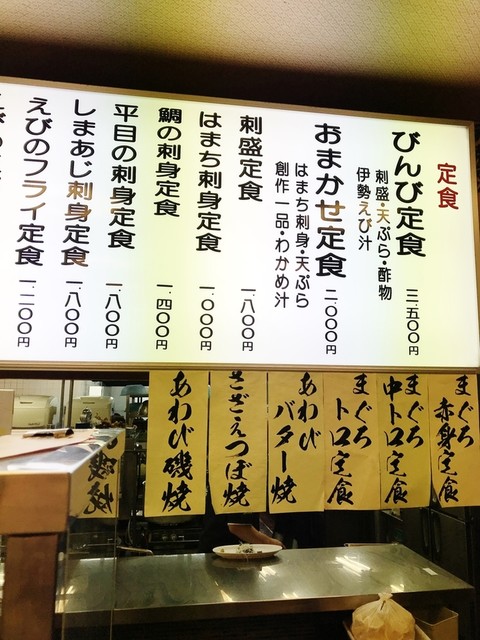 定食
びんび定食 三、五〇〇円
刺盛・天ぷら・酢物
伊勢えび汁
おまかせ定食 二、〇〇〇円
はまち刺身・天ぷら
創作一品・わかめ汁
刺盛定食 一、八〇〇円
はまち刺身定食 一、〇〇〇円
鯛の刺身定食 一、四〇〇円
平目の刺身定食 一、八〇〇円
しまあじ刺身定食 一、八〇〇円
えびのフライ定食 一、二〇〇円
まぐろ赤身定食
まぐろ中トロ定食
まぐろトロ定食
あわびバター焼
さざえつぼ焼
あわび磯焼
磯焼